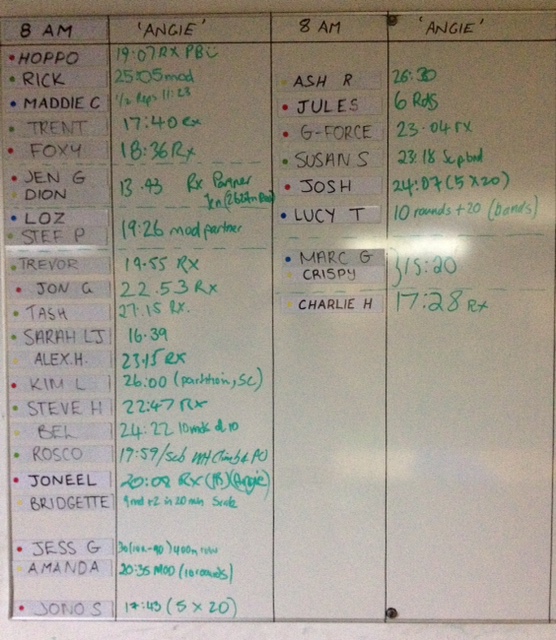 8 AM 'ANGIE'
HOPPO 19:07 RX PB
RICK 25:05 mod
MADDIE C 1/2 Reps 11:23
TRENT 17:40 rx
FOXY 18:36 Rx
JEN G
DION 13.43 Rx Partner
LOZ
STEF P 19:26 mod partner
TREVOR 19.55 RX
JON G 22.53 RX
TASH 27.15 RX.
SARAH LJ 16.39
ALEX.H. 23.15 RX
KIM L 26:00 (partition, SC)
STEVE H 22:47 RX
BEL 24:22
ROSCO 19:59/Sub
JONEEL 20:08 RX (PB) (Angie)
BRIDGETTE 9 rnd +2 in 20 min Scale
JESS G 400m row
AMANDA 20:35 MOD (10 rounds)
JONO S 17:43 (5 X 20)
8 AM 'ANGIE'
ASH R 26:30
JULES 6 Rds
G-FORCE 23.04 rx
SUSAN S 23.18
JOSH 24:07 (5 X 20)
LUCY T 10 rounds + 20 (bands)
MARC G
CRISPY } 15:20
CHARLIE H 17:28 Rx